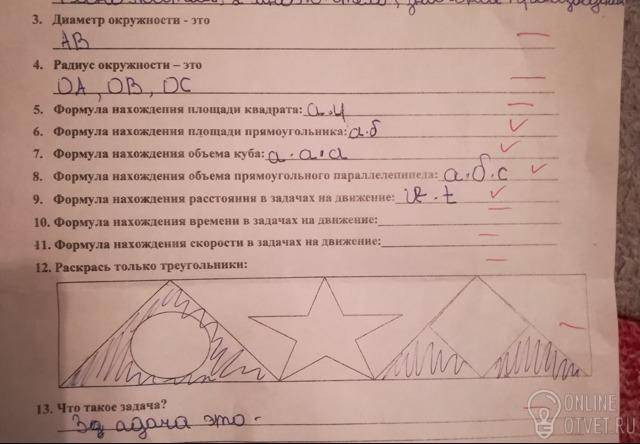 3. Диаметр окружности - это
АВ
4. Радиус окружности – это
ОА, ОВ, ОС
5. Формула нахождения площади квадрата: а·4
6. Формула нахождения площади прямоугольника: а·б
7. Формула нахождения объема куба: а·а·а
8. Формула нахождения объема прямоугольного параллелепипеда: а·б·с
9. Формула нахождения расстояния в задачах на движение: v·t
10. Формула нахождения времени в задачах на движение:
11. Формула нахождения скорости в задачах на движение:
12. Раскрась только треугольники:
13. Что такое задача?
Задача это -
ONLINE
OTVET.RU